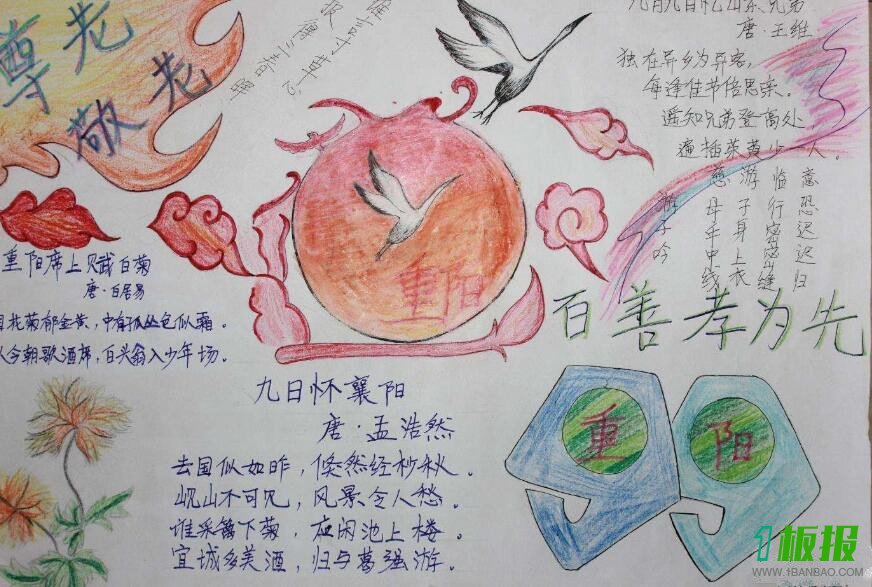 尊老
敬老
谁言寸草心
报得三春晖
九月九日忆山东兄弟
唐·王维
独在异乡为异客,
每逢佳节倍思亲。
遥知兄弟登高处,
遍插茱萸少一人。
游子吟
慈母手中线
游子身上衣
临行密密缝
意恐迟迟归
重阳
百善孝为先
重阳席上赋白菊
唐·白居易
花菊郁金黄,中有孤丛色似霜。
今朝歌酒席,白头翁入少年场。
九日怀襄阳
唐·孟浩然
去国似如昨,倏然经杪秋。
岘山不可见,风景令人愁。
谁采篱下菊,应闲池上楼。
宜城多美酒,归与葛强游。
重阳
1板报
WWW.1BANBAO.COM